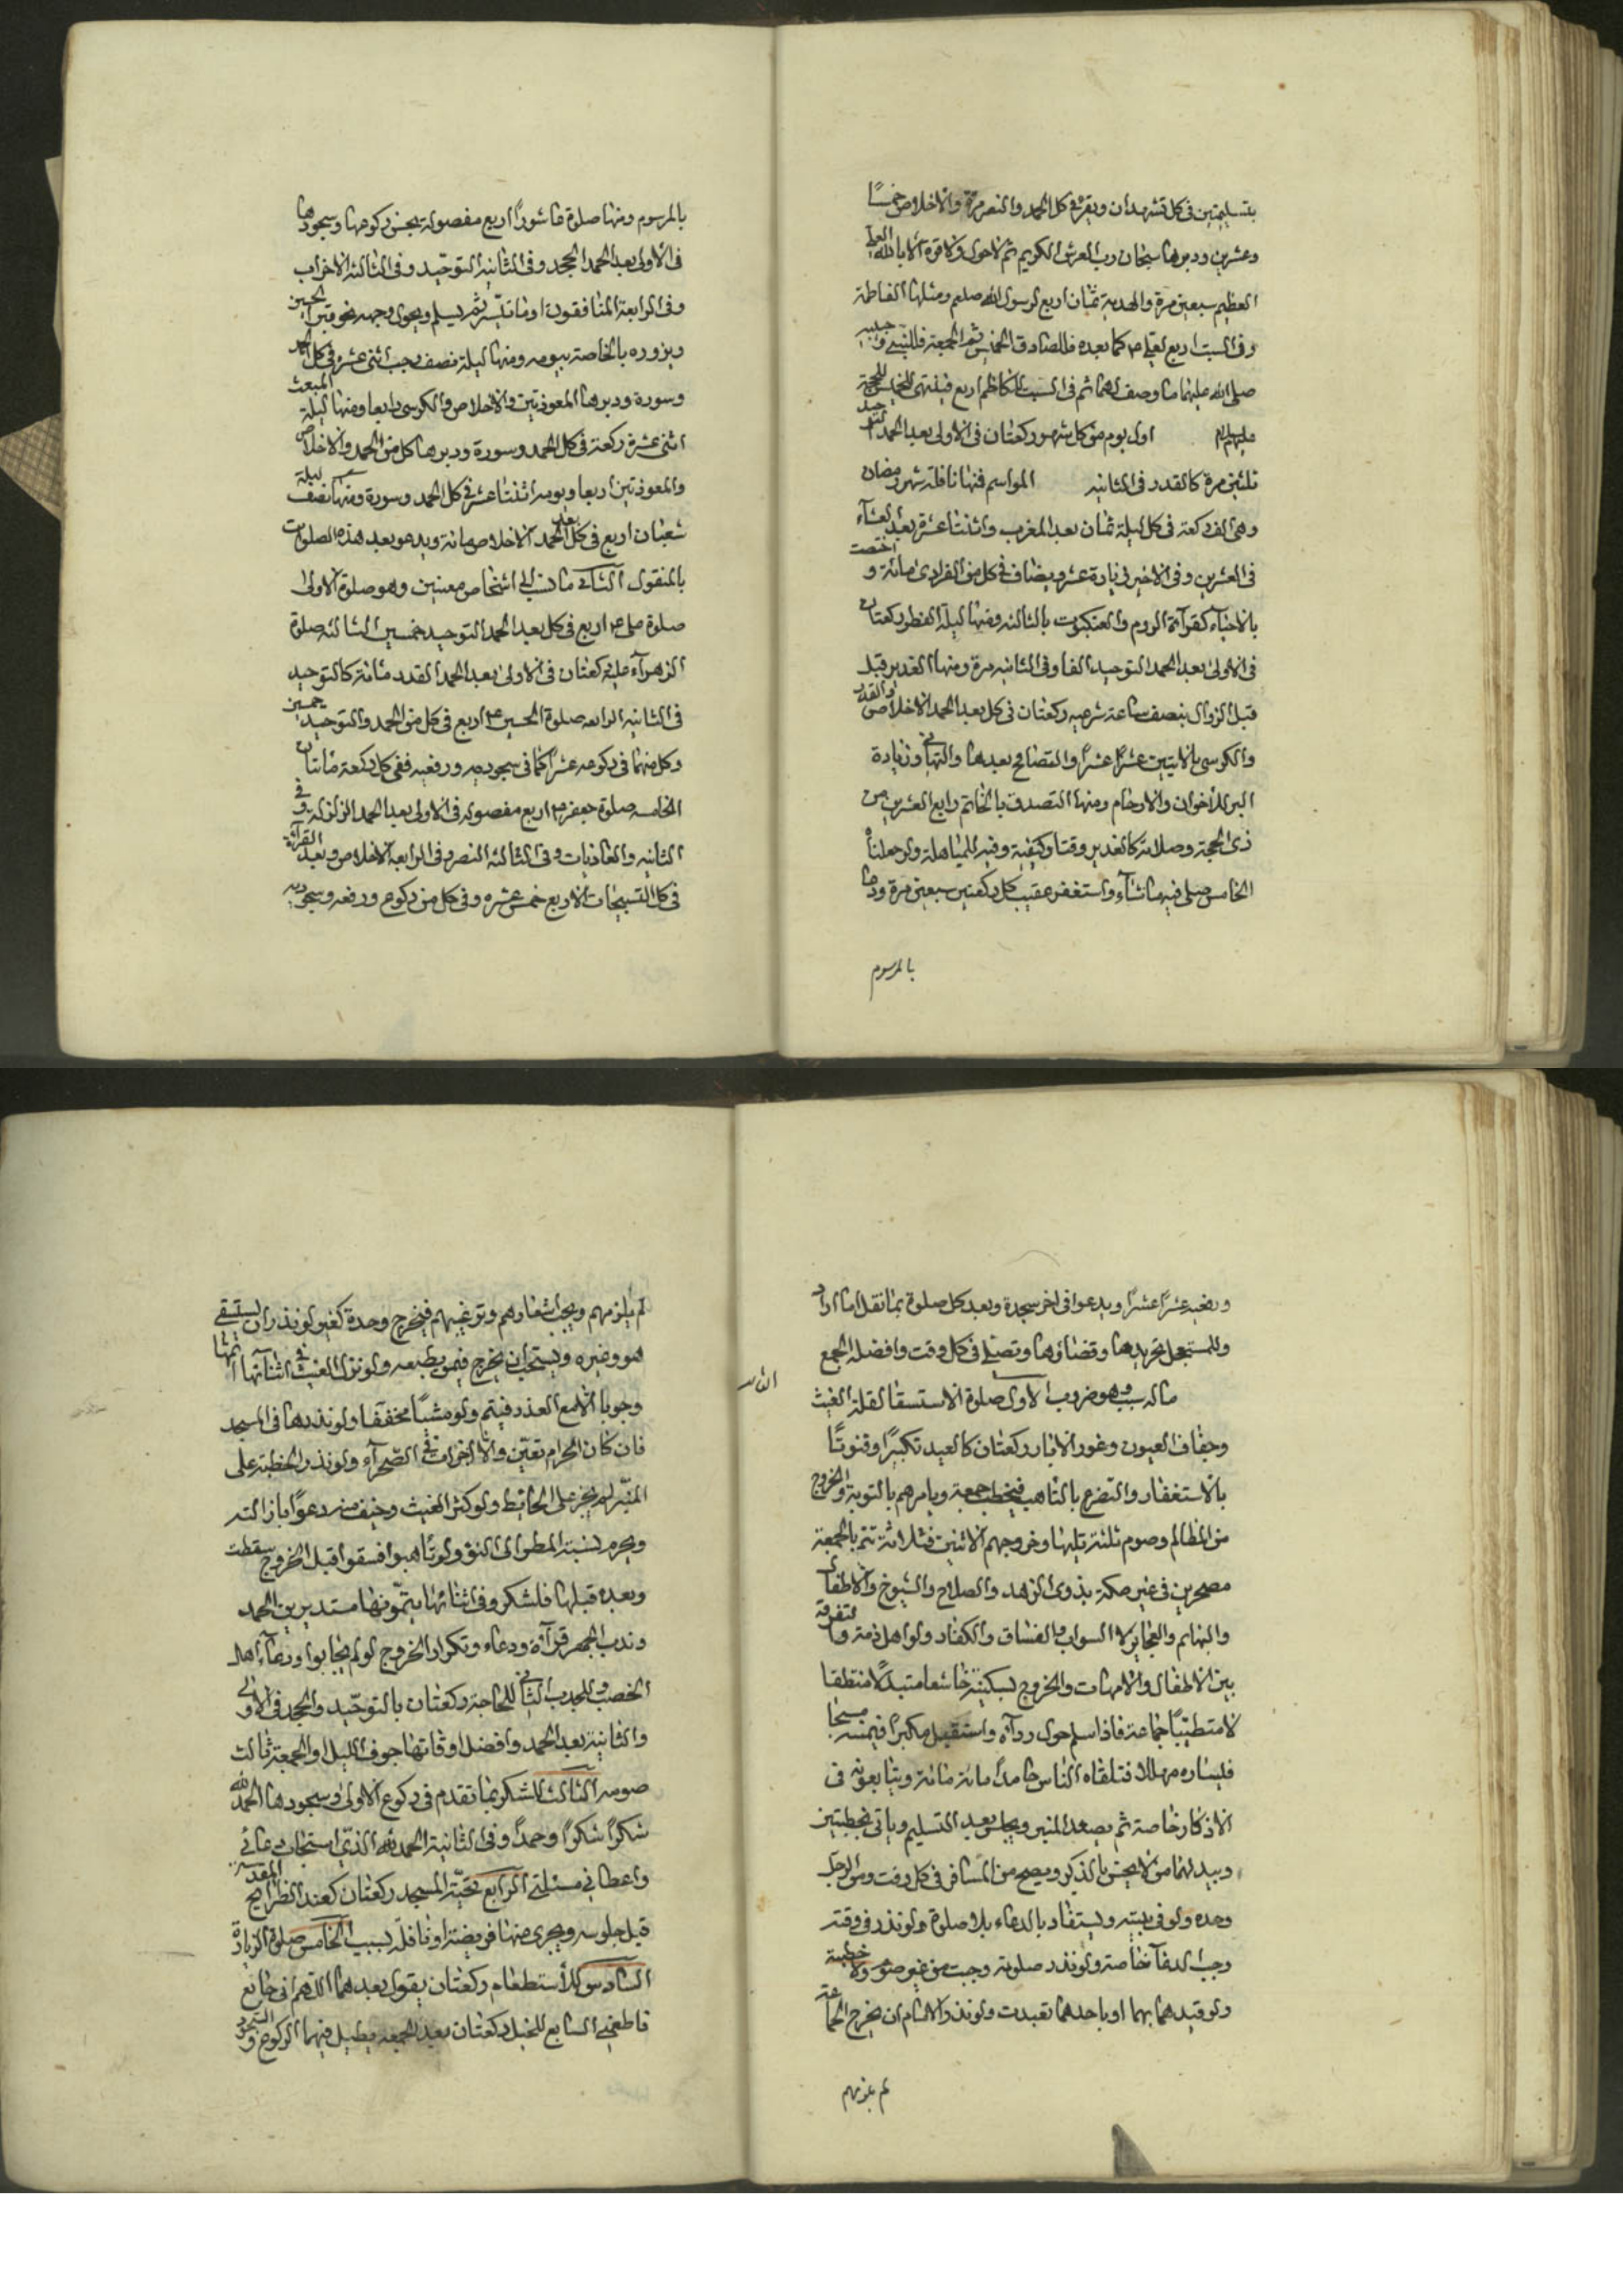 بتسليمتين في كل تشهدان ويقرء في كل الحمد والنصر مرة والاخلاص خمسًا
وعشرين ودبرها سبحان رب العرش الكريم ثم لاحول ولا قوة الا بالله العلي
العظيم سبعين مرة والهدية ثمان اربع لرسول الله صلعم ومثلها الفاطمة
وفي السبت اربع لعلي ع كما بعده فللصادق الخميس ثم الجمعة فللنبي و
صلى الله عليهما ما وصف لهما ثم في السبت للكاظم اربع فينتهي الخميس للحجة
عليهم السلام اول يوم من كل شهر ركعتان في الاولى بعد الحمد التوحيد
ثلثين مرة كالقدر في الثانية المواسم فمنها نافلة شهر رمضان
وهي الف ركعة في كل ليلة ثمان بعد المغرب واثنتا عشرة بعد العشاء
في العشرين وفي الاخير في زيادة عشر ويضاف في كل من الفرادى مائة و اختصت
بالاحياء كقرآءة الروم والعنكبوت بالثالثة ومنها ليلة الفطر ركعتان
في الاولى بعد الحمد التوحيد الفا وفي الثانية مرة ومنها الغدير قبل
قبل الزوال بنصف ساعة شرعية ركعتان في كل بعد الحمد الاخلاص والقدر
والكرسي بالايتين عشرًا عشرًا والتصافح بعدها والتهاني وزيادة
البر للاخوان والارحام ومنها التصدق بالخاتم رابع العشرين من
ذي الحجة وصلاته كالغدير وقتا وكيفية وفيه للمباهلة ولو جعلناه
الخامس صلى فيه ما شاء واستغفر عقيب كل ركعتين سبعين مرة ودعا
بالمرسوم
بالمرسوم ومنها صلوة عاشورا اربع مفصولة يحسن ركوعها وسجودها
في الاولى بعد الحمد الجحد وفي الثانية التوحيد وفي الثالثة الاحزاب
وفي الرابعة المنافقون او ما تيسر ثم يسلم ويحول وجهه نحو قبر الحسين
ويزوره بالخاصة بيومه ومنها ليلة نصف رجب اثنى عشر في كل الحمد
وسورة ودبرها المعوذتين والاخلاص والكرسي رابعا ومنها ليلة المبعث
اثنى عشرة ركعة في كل الحمد وسورة ودبرها كل من الحمد والاخلاص
والمعوذتين اربعا ويومه اثنتا عشر في كل الحمد وسورة ومنها نصف ليلة
شعبان اربع في كل بعد الحمد الاخلاص مائة ويدعو بعد هذه الصلوات
بالمنقول الثاني ما نسب الى اشخاص معينين وهو صلوة الاولى
صلوة علي ع اربع في كل بعد الحمد التوحيد خمسين الثالثة صلوة
الزهرآء عليه ركعتان في الاولى بعد الحمد القدر مائة كالتوحيد
في الثانية الرابعة صلوة الحسين ع اربع في كل من الحمد والتوحيد خمسين
وكل منهما في ركوعه عشرًا كما في سجوديه ورفعيه ففي كل ركعة مائتان
الخامسة صلوة جعفر ع اربع مفصولة في الاولى بعد الحمد الزلزلة وفي
الثانية والعاديات وفي الثالثة النصر وفي الرابعة الاخلاص وبعد القرآءة
في كل التسبيحات الاربع خمس عشرة وفي كل من ركوع ورفعه وسجوديه
ورفعيه عشرًا عشرًا ويدعوا في اخر سجدة وبعد كل صلوة بما نقل اما اراد
وللمستعجل تجريدها وقضاؤها وتصلى في كل وقت وافضله الجمع
الثالث
ماله سبب وهو ضروب الاول صلوة الاستسقا لقلة الغيث
وجفاف العيون وغور الابار ركعتان كالعيد تكبيرًا وقنوتًا
بالاستغفار والتضرع بالتاهب فيخطب جمعة ويامرهم بالتوبة والخروج
من المظالم وصوم ثلثة تليها وخروجهم الاثنين فثلاثة تتم بالجمعة
مصحرين في غير مكة بذوي الزهد والصلاح والشيوخ والاطفال
والبهائم والعجايز لا السواب والفساق والكفار ولو اهل ذمة والتفرقة
بين الاطفال والامهات والخروج بسكينة خاشعا متبذلا متنظفا
لا متطيبًا جماعة فاذا سلم حول ردآه واستقبل مكبرًا فيمنه مسبحا
فيساره مهللا فتلقاه الناس حامدًا مائة مائة ويتابعونه في
الاذكار خاصة ثم يصعد المنبر ويجلس بعد التسليم وياتي بخطبتين
ويبدلهما من لا يحسن بالذكر ويصح من المسافر في كل وقت ومن الرجل
وحده ولو في بيته ويستفاد بالدعاء بلا صلوة ولو نذر في وقته
وجب الدعآ خاصة ولو نذر صلوته وجبت من غير صوم ولا خطبة
ولو قيدهما بهما او باحدهما تقيدت ولو نذر الامام ان يخرج الجماعة
لم يلزمهم
لم يلزمهم ويجب اشعارهم وترغيبهم فيخرج وحده كغير لو نذر ان يستسقى
هو وغيره ويستحب ان يخرج فيمن يطيعه ولو نزل الغيث في اثنآئها اتمها
وجوبا الا مع العذر فيتم ولو مشيًا مخففا ولو نذرها في المسجد
فان كان الحرام تعين والا اجزات في الصحرآء ولو نذر الخطبة على
المنبر لم يجز على الحائط ولو كثر الغيث وخيف منه دعوا بازالته
ويحرم نسبة المطر الى النوء ولو تاهبوا فسقوا قبل الخروج سقطت
وبعده قبلها فلشكر وفي اثنائها يتمونها مستديرين الحمد
وندب الجهر قرآءة ودعاء وتكرار الخروج لو لم يجابوا ودعآء اهل
الخصب للجدب الثاني للحاجة ركعتان بالتوحيد والجحد في الاولى
والثانية بعد الحمد وافضل اوقاتها جوف الليل او الجمعة ثالث
صومه الثالث للشكر بما تقدم في ركوع الاولى وسجودها الحمد لله
شكرًا شكرًا وحمدًا وفي الثانية الحمد لله الذي استجاب دعائي
واعطاني مسئلتي الرابع تحية المسجد ركعتان كعند الضرايح المقدسة
قبل جلوسه ويجزى منها فريضة او نافلة لسبب الخامس صلوة الزيارة
السادس للاستطعام ركعتان يقول بعدهما اللهم اني جائع
فاطعمني السابع للحبل ركعتان بعد الجمعة يطيل فيهما الركوع والسجود